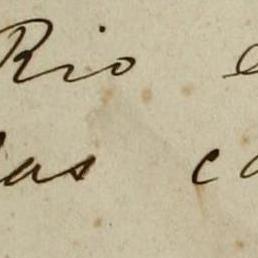 Rio
as c